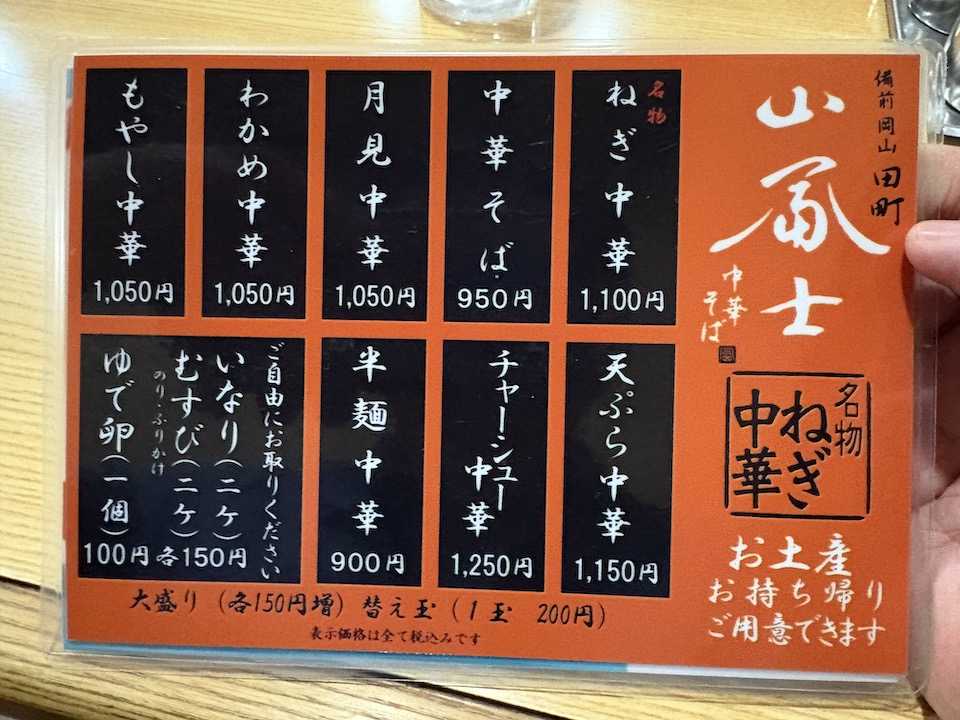 備前岡山 田町
山冨士
中華そば
名物
ねぎ中華
お土産
お持ち帰り
ご用意できます
名物
ねぎ中華
1,100円
中華そば
950円
月見中華
1,050円
わかめ中華
1,050円
もやし中華
1,050円
天ぷら中華
1,150円
チャーシュー
中華
1,250円
半麺中華
900円
ご自由にお取りください
いなり(二ケ)
むすび(二ケ)
のり・ふりかけ
各150円
ゆで卵(一個)
100円
大盛り (各150円増) 替え玉 (1玉 200円)
表示価格は全て税込みです